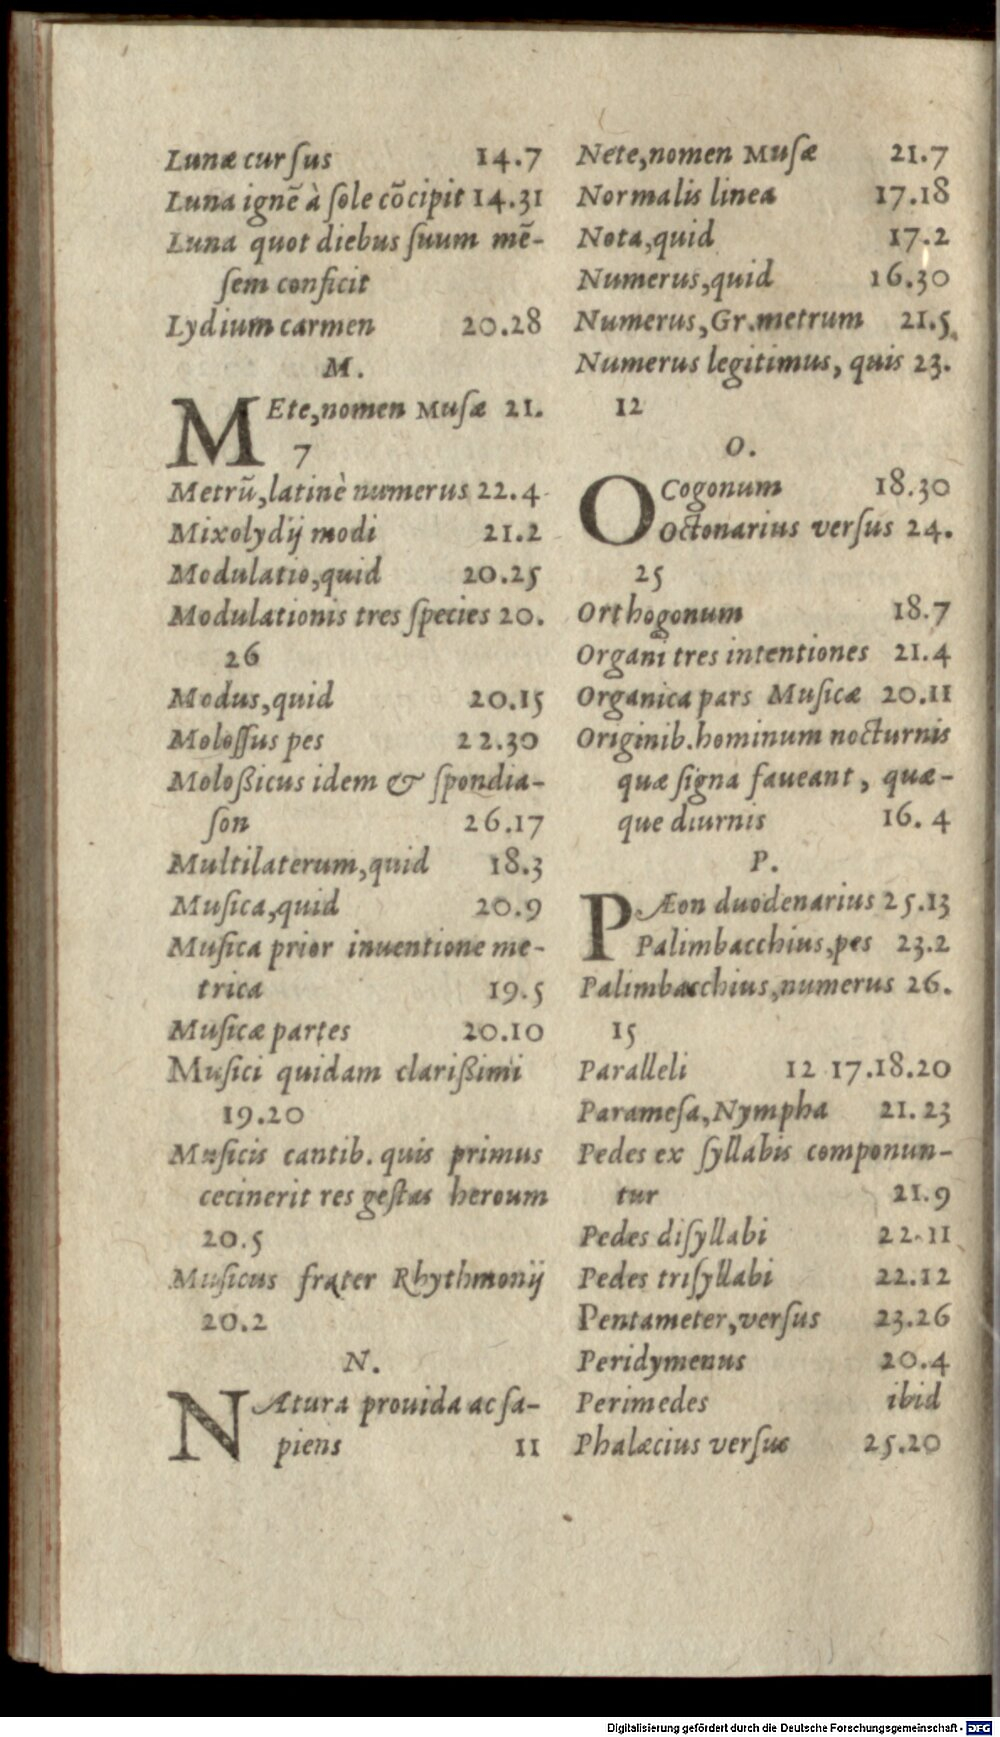 Lunæ cursus 14.7
Luna ignē à sole cōcipit 14.31
Luna quot diebus suum mē-
sem conficit
Lydium carmen 20.28
M.
MEte,nomen Musæ 21.
7
Metrū,latinè numerus 22.4
Mixolydij modi 21.2
Modulatio,quid 20.25
Modulationis tres species 20.
26
Modus,quid 20.15
Molossus pes 22.30
Moloßicus idem & spondia-
son 26.17
Multilaterum,quid 18.3
Musica,quid 20.9
Musica prior inuentione me-
trica 19.5
Musicæ partes 20.10
Musici quidam clarißimi
19.20
Musicis cantib. quis primus
cecinerit res gestas heroum
20.5
Musicus frater Rhythmonij
20.2
N.
NAtura prouida ac sa-
piens 11
Nete,nomen Musæ 21.7
Normalis linea 17.18
Nota,quid 17.2
Numerus,quid 16.30
Numerus,Gr.metrum 21.5
Numerus legitimus, quis 23.
12
O.
OCogonum 18.30
Octonarius versus 24.
25
Orthogonum 18.7
Organi tres intentiones 21.4
Organica pars Musicæ 20.11
Originib.hominum nocturnis
quæ signa faueant, quæ-
que diurnis 16. 4
P.
PÆon duodenarius 25.13
Palimbacchius,pes 23.2
Palimbacchius,numerus 26.
15
Paralleli 12 17.18.20
Paramesa,Nympha 21. 23
Pedes ex syllabis componun-
tur 21.9
Pedes disyllabi 22.11
Pedes trisyllabi 22.12
Pentameter,versus 23.26
Peridymenus 20.4
Perimedes ibid
Phalæcius versus 25.20
Digitalisierung gefördert durch die Deutsche Forschungsgemeinschaft - DFG